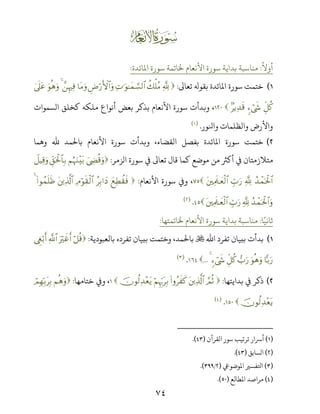 سورة الأنعام
أولاً: مناسبة بداية سورة الأنعام لخاتمة سورة المائدة:
١) ختمت سورة المائدة بقوله تعالى: ﴿ لِلَّهِ مُلْكُ السَّمَاوَاتِ وَالْأَرْضِ وَمَا فِيهِنَّ ۚ وَهُوَ عَلَىٰ
كُلِّ شَيْءٍ قَدِيرٌ ﴾ ١٢٠، وبدأت سورة الأنعام بذكر بعض أنواع ملكه كخلق السموات
والأرض والظلمات والنور. (١)
٢) ختمت سورة المائدة بفصل القضاء، وبدأت سورة الأنعام بالحمد لله وهما
متلازمتان في أكثر من موضع كما قال تعالى في سورة الزمر: ﴿ وَقُضِيَ بَيْنَهُم بِالْحَقِّ وَقِيلَ
الْحَمْدُ لِلَّهِ رَبِّ الْعَالَمِينَ ﴾ ٧٥، وفي سورة الأنعام: ﴿ فَقُطِعَ دَابِرُ الْقَوْمِ الَّذِينَ ظَلَمُوا ۚ
وَالْحَمْدُ لِلَّهِ رَبِّ الْعَالَمِينَ ﴾ ٤٥. (٢)
ثانيًا: مناسبة بداية سورة الأنعام لخاتمتها:
١) بدأت ببيان تفرد الله ﷻ بالحمد، وختمت ببيان تفرده بالعبودية: ﴿ قُلْ أَغَيْرَ اللَّهِ أَبْغِي
رَبًّا وَهُوَ رَبُّ كُلِّ شَيْءٍ ۚ ...﴾ ١٦٤. (٣)
٢) ذكر في بدايتها: ﴿ ثُمَّ الَّذِينَ كَفَرُوا بِرَبِّهِمْ يَعْدِلُونَ ﴾ ١، وفي ختامها: ﴿ وَهُم بِرَبِّهِمْ
يَعْدِلُونَ ﴾ ١٥٠. (٤)
(١) أسرار ترتيب سور القرآن (٤٣).
(٢) السابق (٤٣).
(٣) التفسير الموضوعي (٣٩٩/٢).
(٤) مراصد المطالع (٥٠).
٧٤